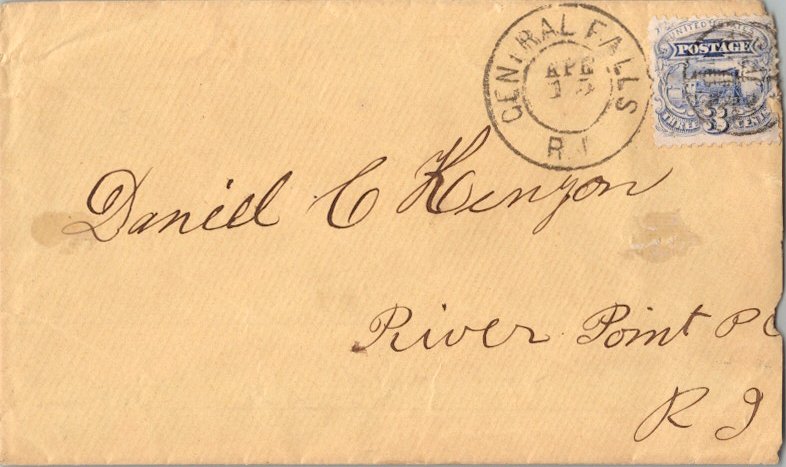 CENTRAL FALLS
APR
15
R.I.
UNITED STATES
POSTAGE
THREE 3 CENTS
Daniel C Kenyon
River Point P O
R I